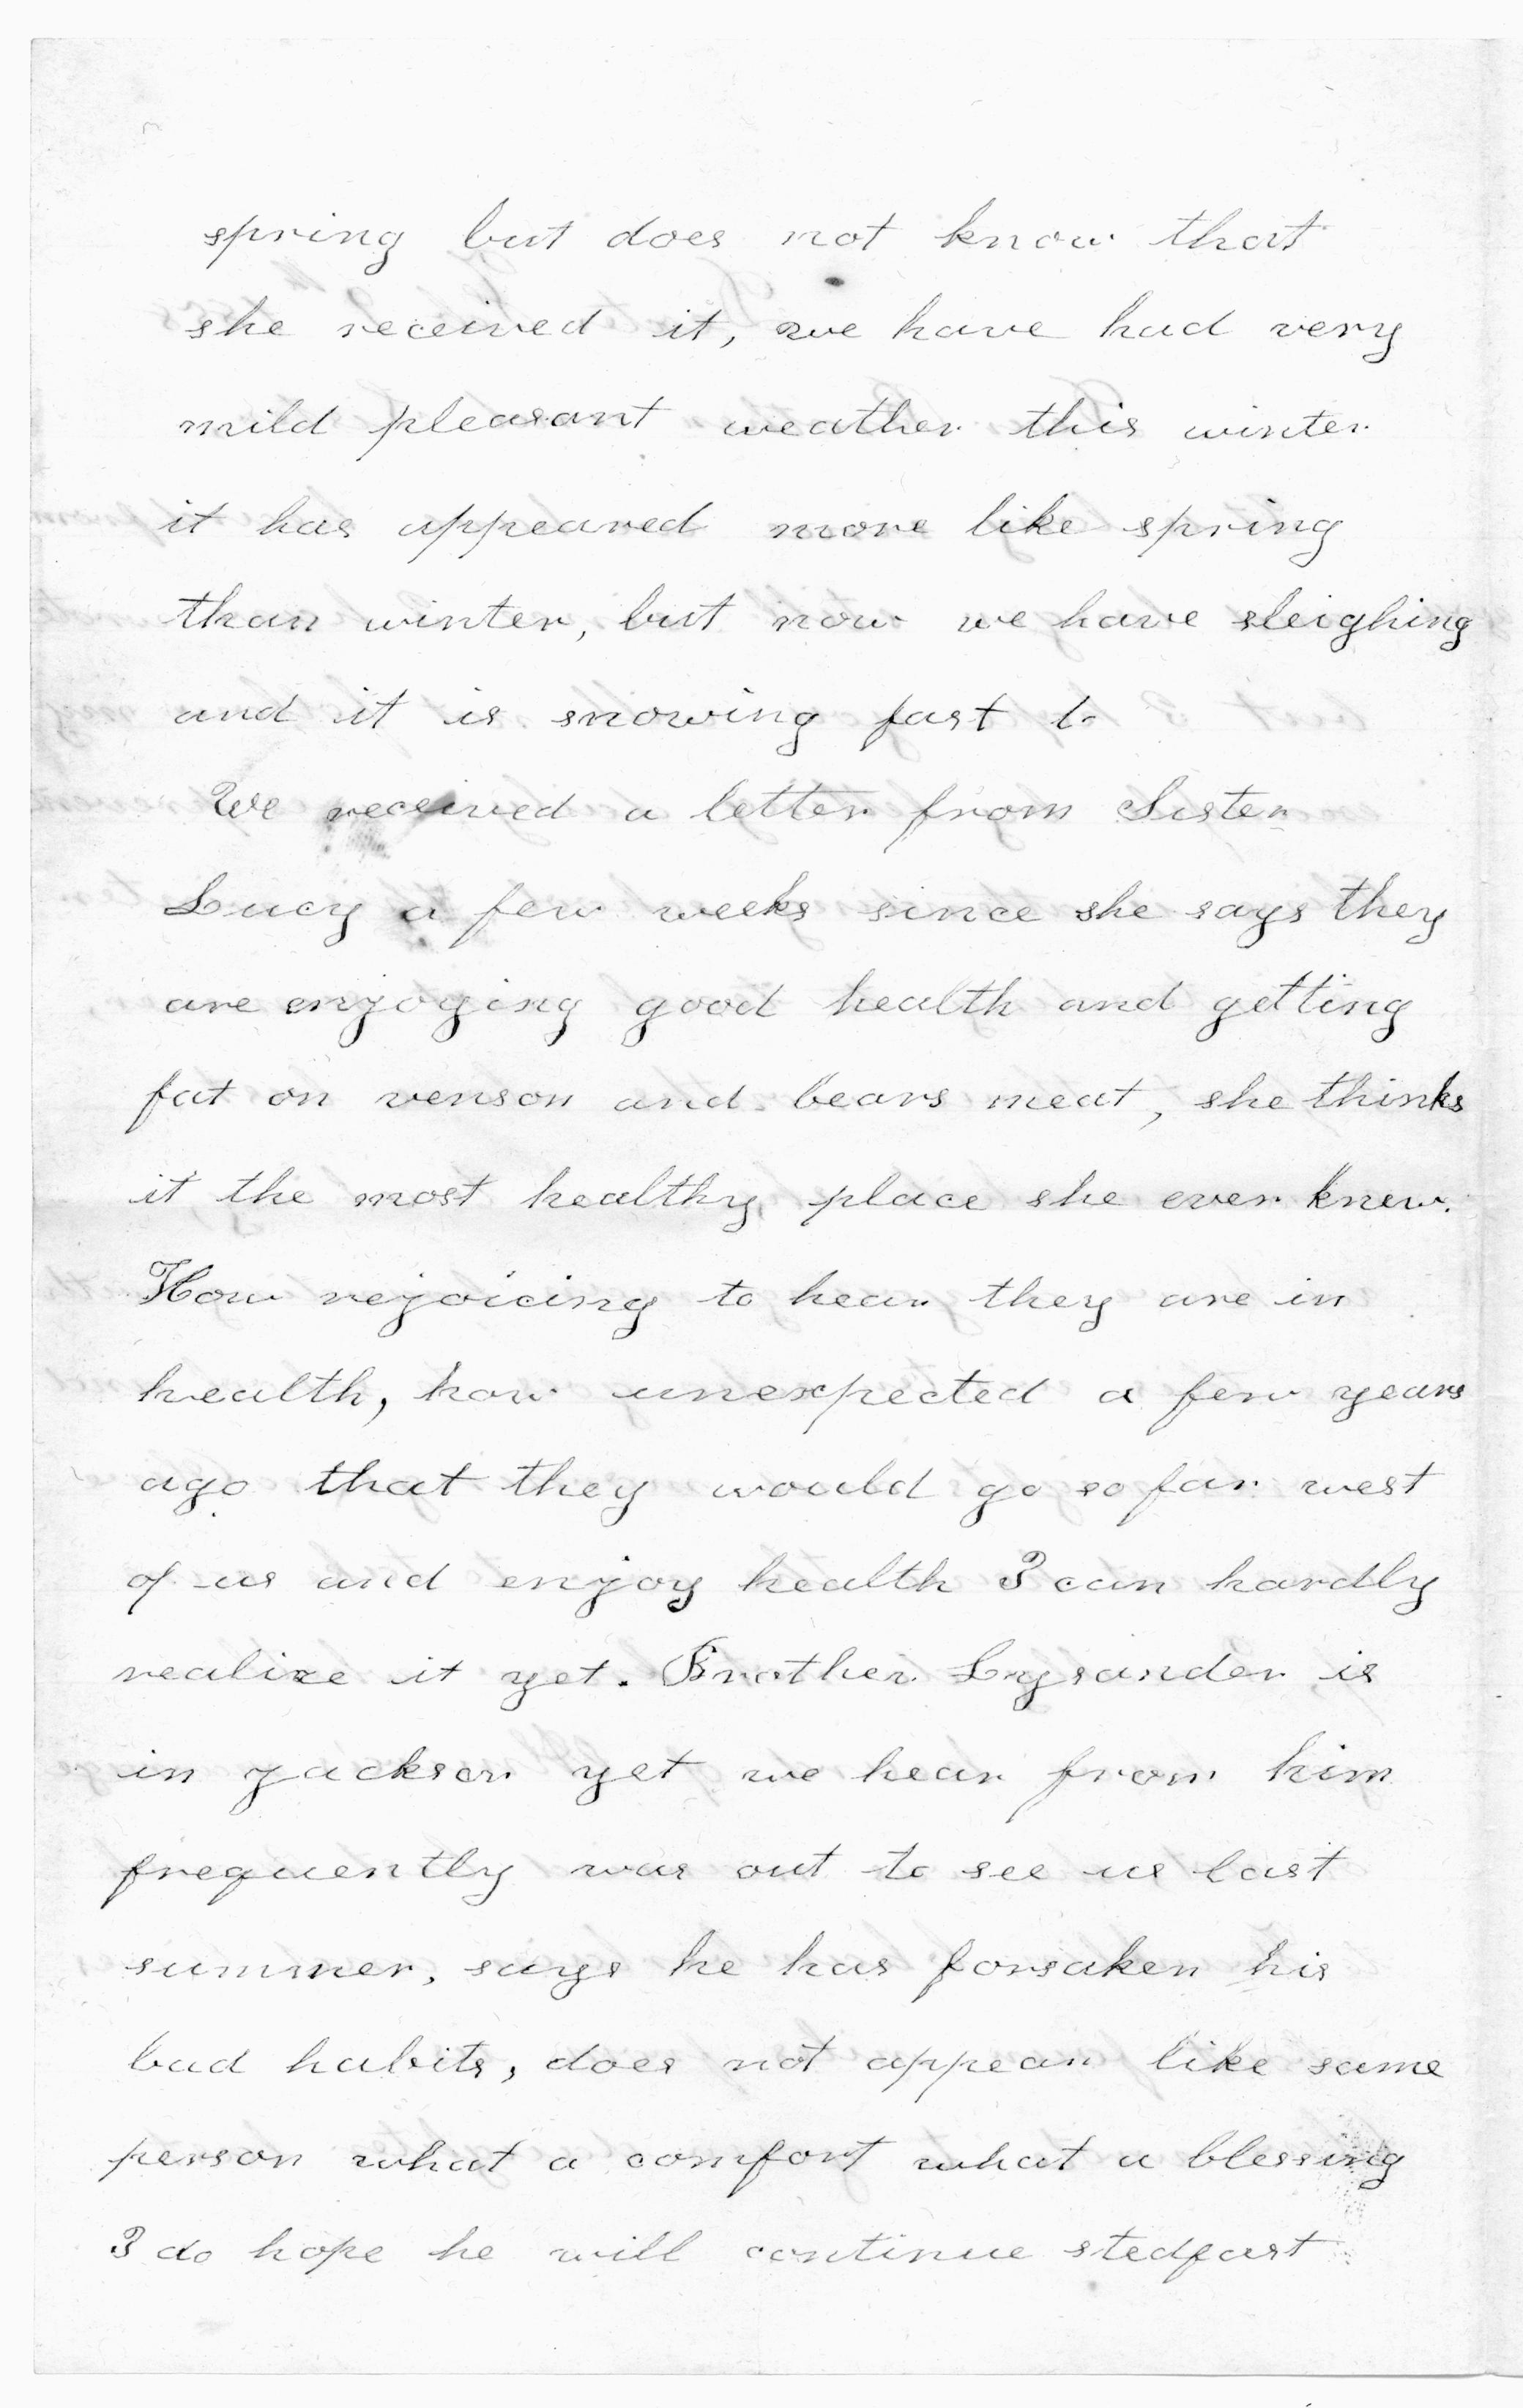 spring but does not know that
she received it, we have had very
mild pleasant weather this winter
it has appeared more like spring
than winter, but now we have sleighing
and it is snowing fast to
We received a letter from Sister
Lucy a few weeks since she says they
are enjoying good health and getting
fat on venson and bears meat, she thinks
it the most healthy place she ever knew.
How rejoicing to hear they are in
health, how unexpected a few years
ago that they would go so far west
of us and enjoy health I can hardly
realize it yet. Brother Lysander is
in Jackson yet we hear from him
frequently was out to see us last
summer, says he has forsaken his
bad habits, does not appear like same
person what a comfort what a blessing
I do hope he will continue stedfast